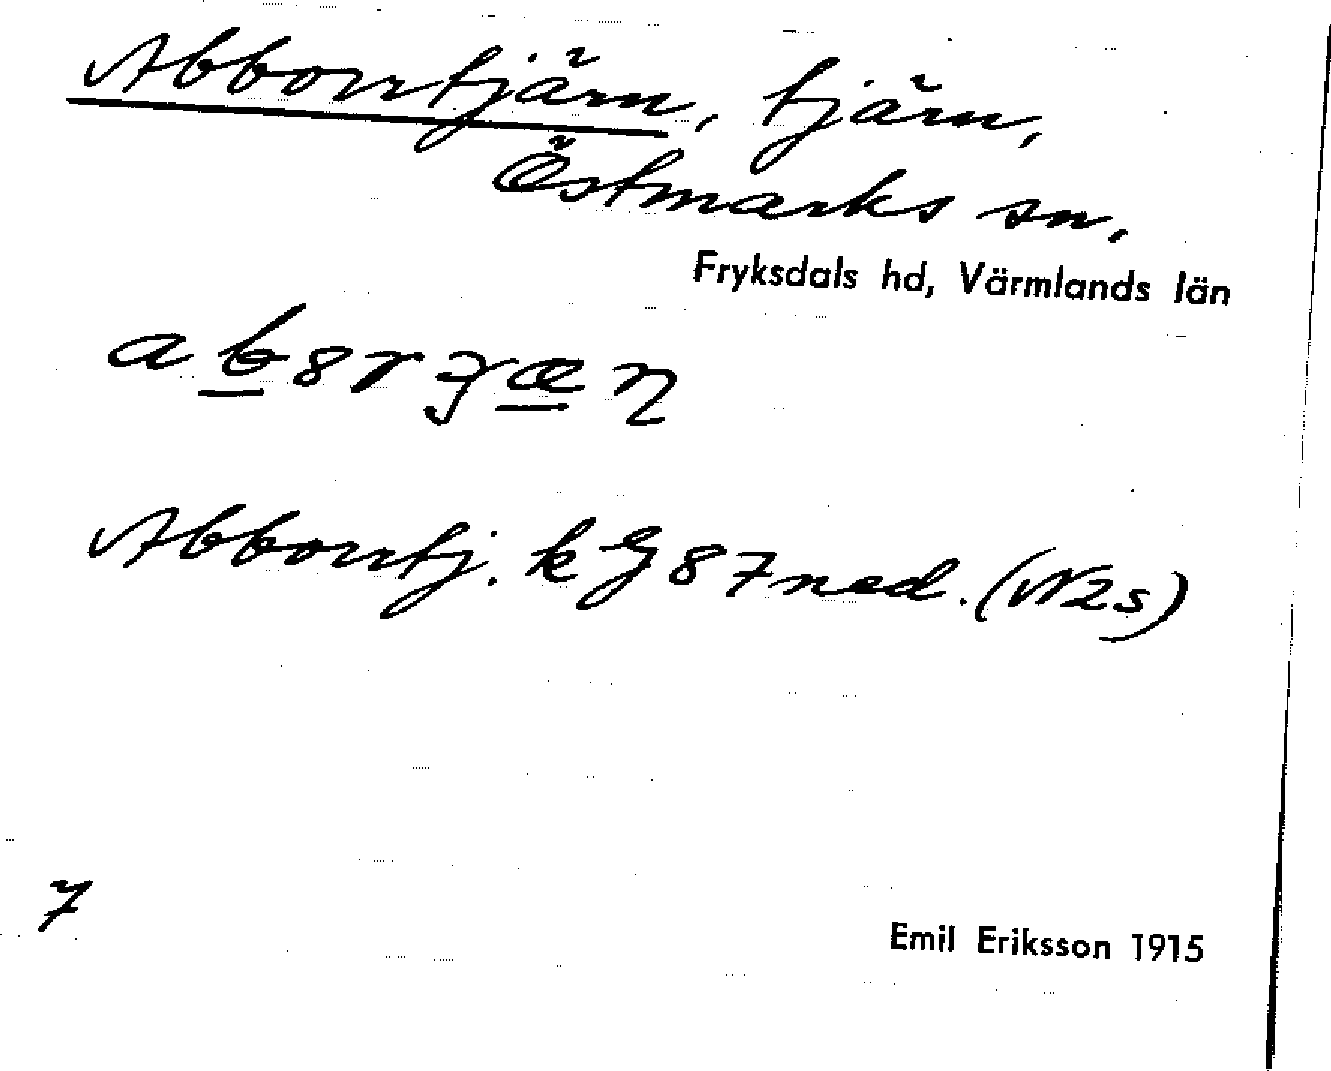 Abborrtjärn, tjärn,
Östmarks sn.
Fryksdals hd, Värmlands län
Abborrtj. k G 87 ned. (N2s)
7
Emil Eriksson 1915